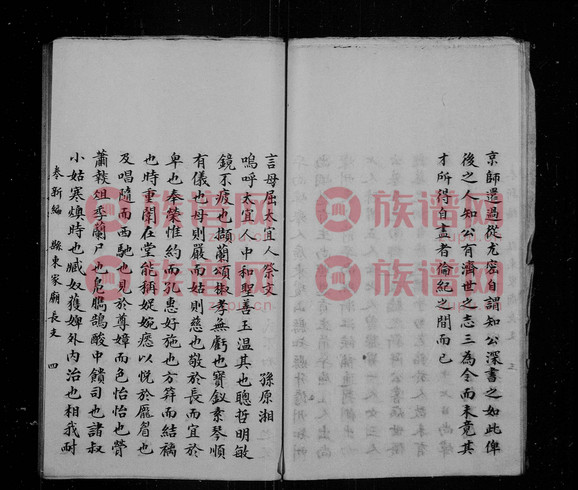 京師還過從尤密自謂知公深書之如此俾
後之人知公有濟世之志三為令而未竟其
才所得自盡者倫紀之間而已
言母屈太宜人祭文
孫原湘
嗚呼太宜人中和聖善玉溫其也聰哲明敏
鏡不疲也擷蘭頌椒孝無虧也寶釵素琴順
有儀也母則嚴而姑則慈也敬於長而宜於
卑也奉榮惟約而孔惠好施也方笄而結褵
也時重闈在堂能稱娖婉悉以悅於龐眉也
及唱隨而西馳也見於尊嫜而色怡怡也膋
蕭羞俎季蘭尸也危膓鵠酸中饋司也諸叔
小姑寒燠時也臧奴獲婢外內治也相我耐
叁新編
縣東家廟長支
四
族谱网